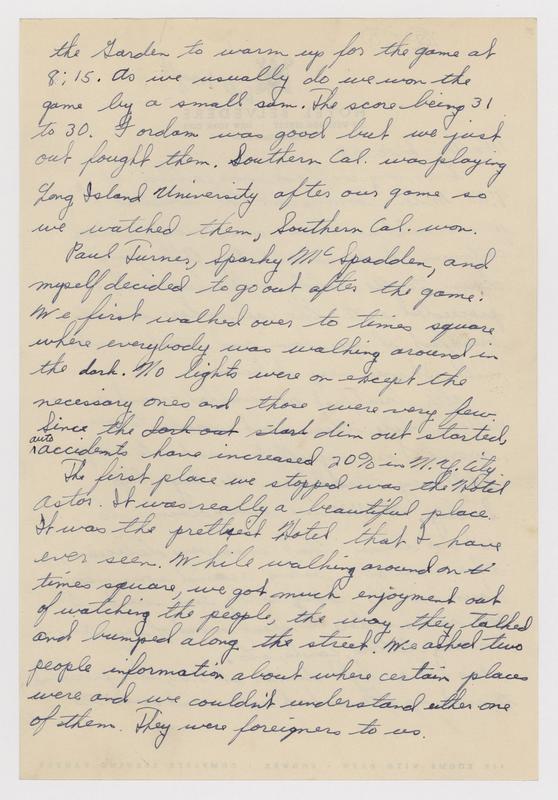 the Garden to warm up for the game at
8:15. As we usually do we won the
game by a small sum. The score being 31
to 30. Fordam was good but we just
out fought them. Southern Cal. was playing
Long Island University after our game so
we watched them, Southern Cal. won.
Paul Turner, Sparky McSpadden, and
myself decided to go out after the game.
We first walked over to times square
where everybody was walking around in
the dark. No lights were on except the
necessary ones and those were very few.
Since the dark out start dim out started,
auto
accidents have increased 20% in N.Y. City.
The first place we stopped was the Hotel
Astor. It was really a beautiful place.
It was the prettyest Hotel that I have
ever seen. While walking around on
times square, we got much enjoyment out
of watching the people, the way they talked
and bumped along the street. We asked two
people information about where certain places
were and we couldn't understand either one
of them. They were foreigners to us.